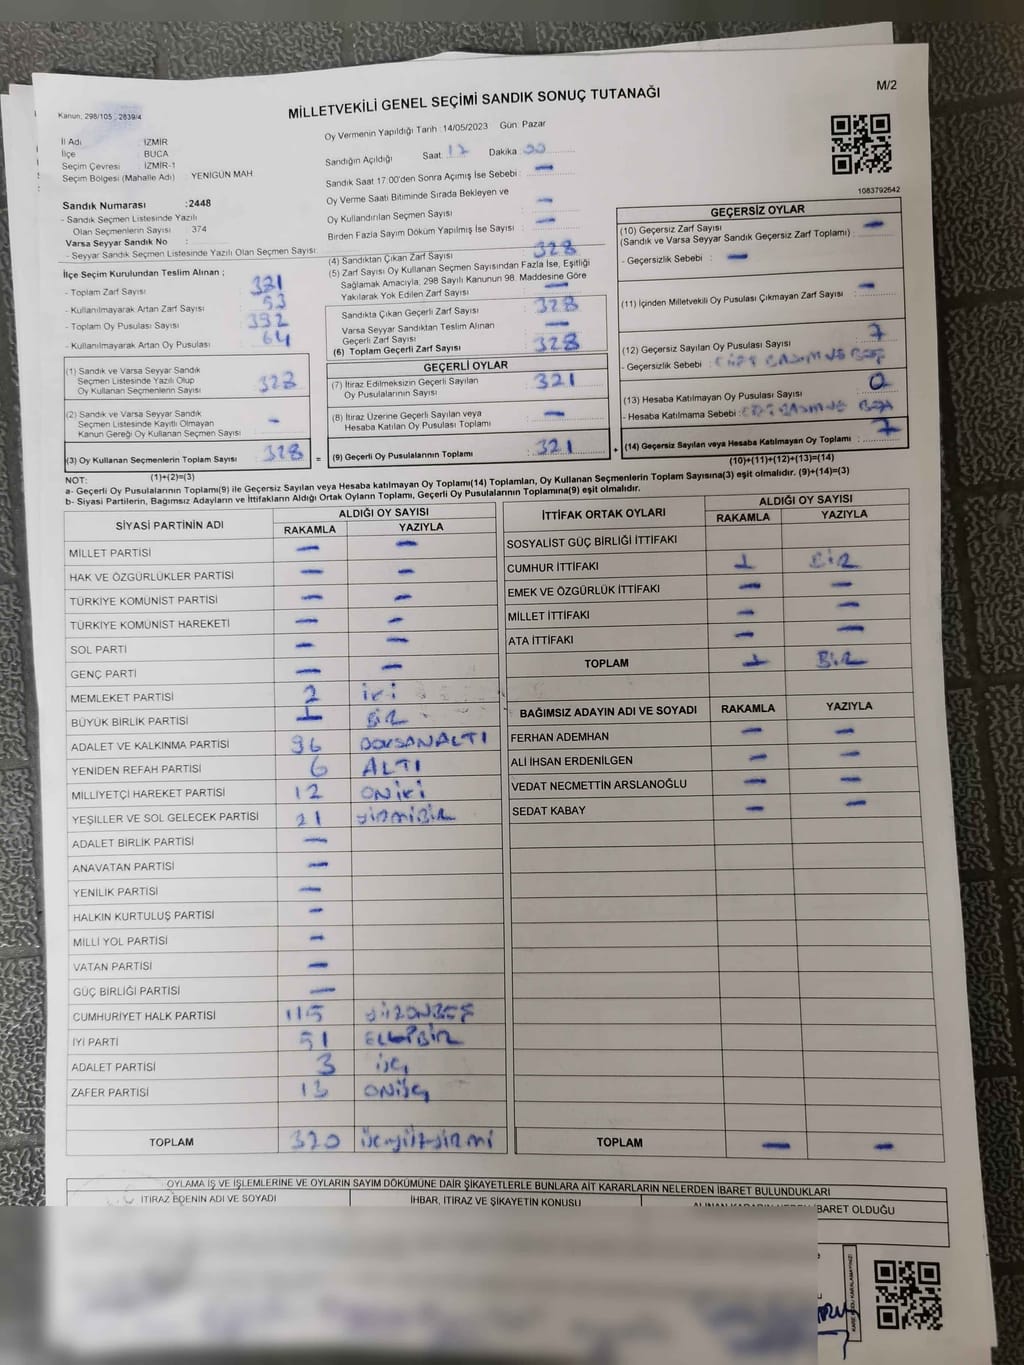 M/2
MİLLETVEKİLİ GENEL SEÇİMİ SANDIK SONUÇ TUTANAĞI
Kanun, 298/105 - 2839/4
İl Adı : İZMİR
İlçe : BUCA
Seçim Çevresi : İZMİR-1
Seçim Bölgesi (Mahalle Adı) : YENİGÜN MAH
Oy Vermenin Yapıldığı Tarih :14/05/2023 Gün: Pazar
Sandığın Açıldığı Saat 17 Dakika
Sandık Saat 17:00'den Sonra Açımış İse Sebebi : —
Oy Verme Saati Bitiminde Sırada Bekleyen ve
Oy Kullandırılan Seçmen Sayısı : —
Birden Fazla Sayım Döküm Yapılmış İse Sayısı : —
1083792642
Sandık Numarası :2448
- Sandık Seçmen Listesinde Yazılı
Olan Seçmenlerin Sayısı : 374
Varsa Seyyar Sandık No :
- Seyyar Sandık Seçmen Listesinde Yazılı Olan Seçmen Sayısı:
İlçe Seçim Kurulundan Teslim Alınan ;
- Toplam Zarf Sayısı : 381
- Kullanılmayarak Artan Zarf Sayısı : 53
- Toplam Oy Pusulası Sayısı : 392
- Kullanılmayarak Artan Oy Pusulası : 64
(1) Sandık ve Varsa Seyyar Sandık
Seçmen Listesinde Yazılı Olup
Oy Kullanan Seçmenlerin Sayısı : 328
(2) Sandık ve Varsa Seyyar Sandık
Seçmen Listesinde Kayıtlı Olmayan
Kanun Gereği Oy Kullanan Seçmen Sayısı : -
(3) Oy Kullanan Seçmenlerin Toplam Sayısı : 328
(1)+(2)=(3)
(4) Sandıktan Çıkan Zarf Sayısı : 328
(5) Zarf Sayısı Oy Kullanan Seçmen Sayısından Fazla İse, Eşitliği
Sağlamak Amacıyla, 298 Sayılı Kanunun 98. Maddesine Göre
Yakılarak Yok Edilen Zarf Sayısı : —
Sandıkta Çıkan Geçerli Zarf Sayısı : 328
Varsa Seyyar Sandıktan Teslim Alınan
Geçerli Zarf Sayısı : —
(6) Toplam Geçerli Zarf Sayısı : 328
GEÇERLİ OYLAR
(7) İtiraz Edilmeksizin Geçerli Sayılan
Oy Pusulalarının Sayısı : 321
(8) İtiraz Üzerine Geçerli Sayılan veya
Hesaba Katılan Oy Pusulası Toplamı : —
= (9) Geçerli Oy Pusulalarının Toplamı : 321 +
GEÇERSİZ OYLAR
(10) Geçersiz Zarf Sayısı : —
(Sandık ve Varsa Seyyar Sandık Geçersiz Zarf Toplamı)
- Geçersizlik Sebebi : —
(11) İçinden Milletvekili Oy Pusulası Çıkmayan Zarf Sayısı : —
(12) Geçersiz Sayılan Oy Pusulası Sayısı : 7
- Geçersizlik Sebebi :
(13) Hesaba Katılmayan Oy Pusulası Sayısı : 0
- Hesaba Katılmama Sebebi :
(14) Geçersiz Sayılan veya Hesaba Katılmayan Oy Toplamı : 7
(10)+(11)+(12)+(13)=(14)
NOT:
a- Geçerli Oy Pusulalarının Toplamı(9) ile Geçersiz Sayılan veya Hesaba katılmayan Oy Toplamı(14) Toplamları, Oy Kullanan Seçmenlerin Toplam Sayısına(3) eşit olmalıdır. (9)+(14)=(3)
b- Siyasi Partilerin, Bağımsız Adayların ve İttifakların Aldığı Ortak Oyların Toplamı, Geçerli Oy Pusulalarının Toplamına(9) eşit olmalıdır.
SİYASİ PARTİNİN ADI ALDIĞI OY SAYISI
RAKAMLA YAZIYLA
MİLLET PARTİSİ — —
HAK VE ÖZGÜRLÜKLER PARTİSİ — —
TÜRKİYE KOMÜNİST PARTİSİ — —
TÜRKİYE KOMÜNİST HAREKETİ — —
SOL PARTİ — —
GENÇ PARTİ — —
MEMLEKET PARTİSİ 2 iki
BÜYÜK BİRLİK PARTİSİ 1 BİR
ADALET VE KALKINMA PARTİSİ 96 DOKSANALTI
YENİDEN REFAH PARTİSİ 6 ALTI
MİLLİYETÇİ HAREKET PARTİSİ 12 ONİKİ
YEŞİLLER VE SOL GELECEK PARTİSİ 21 YİRMİBİR
ADALET BİRLİK PARTİSİ —
ANAVATAN PARTİSİ —
YENİLİK PARTİSİ —
HALKIN KURTULUŞ PARTİSİ —
MİLLİ YOL PARTİSİ —
VATAN PARTİSİ —
GÜÇ BİRLİĞİ PARTİSİ —
CUMHURİYET HALK PARTİSİ 115 YÜZONBEŞ
İYİ PARTİ 51 ELLİBİR
ADALET PARTİSİ 3 üç
ZAFER PARTİSİ 13 ONÜÇ
TOPLAM 320 üçyüzyirmi
İTTİFAK ORTAK OYLARI ALDIĞI OY SAYISI
RAKAMLA YAZIYLA
SOSYALİST GÜÇ BİRLİĞİ İTTİFAKI
CUMHUR İTTİFAKI 1 BİR
EMEK VE ÖZGÜRLÜK İTTİFAKI — —
MİLLET İTTİFAKI — —
ATA İTTİFAKI — —
TOPLAM 1 BİR
BAĞIMSIZ ADAYIN ADI VE SOYADI RAKAMLA YAZIYLA
FERHAN ADEMHAN — —
ALİ İHSAN ERDENİLGEN — —
VEDAT NECMETTİN ARSLANOĞLU — —
SEDAT KABAY — —
TOPLAM — —
OYLAMA İŞ VE İŞLEMLERİNE VE OYLARIN SAYIM DÖKÜMÜNE DAİR ŞİKAYETLERLE BUNLARA AİT KARARLARIN NELERDEN İBARET BULUNDUKLARI
İTİRAZ EDENİN ADI VE SOYADI İHBAR, İTİRAZ VE ŞİKAYETİN KONUSU ALINAN KARARIN NEDEN İBARET OLDUĞU